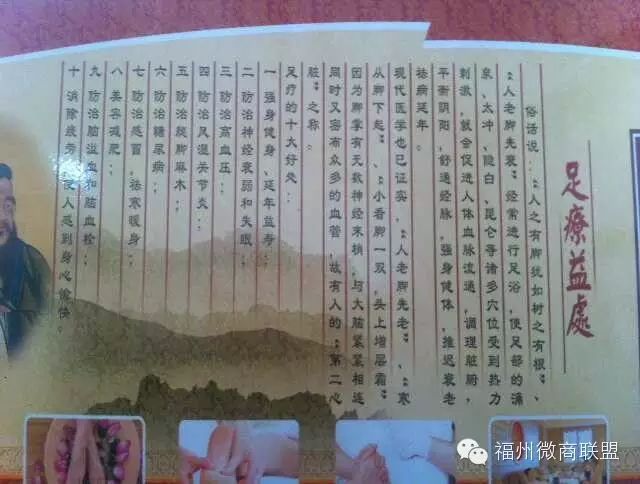 足療益處
俗话说:“人之有脚犹如树之有根”、
“人老脚先衰”经常进行足浴，使足部的涌
泉、太冲、隐白、昆仑等诸多穴位受到热力
刺激，就会促进人体血脉流通，调理脏腑，
平衡阴阳，舒通经脉，强身健体，推迟衰老
祛病延年。
现代医学也已证实，“人老脚先老”、“寒
从脚下起”、“小看脚一双，头上增层霜”
因为脚掌有无数神经末梢，与大脑紧紧相连
同时又密布众多的血管，故有人的“第二心
脏”之称。
足疗的十大好处：
一 强身健身、延年益寿；
二 防治神经衰弱和失眠；
三 防治高血压；
四 防治风湿关节炎；
五 防治腿脚麻木；
六 防治糖尿病；
七 防治感冒，祛寒暖身；
八 美容减肥；
九 防治脑溢血和脑血栓；
十 消除疲劳，使人感到身心愉快。
福州微商联盟